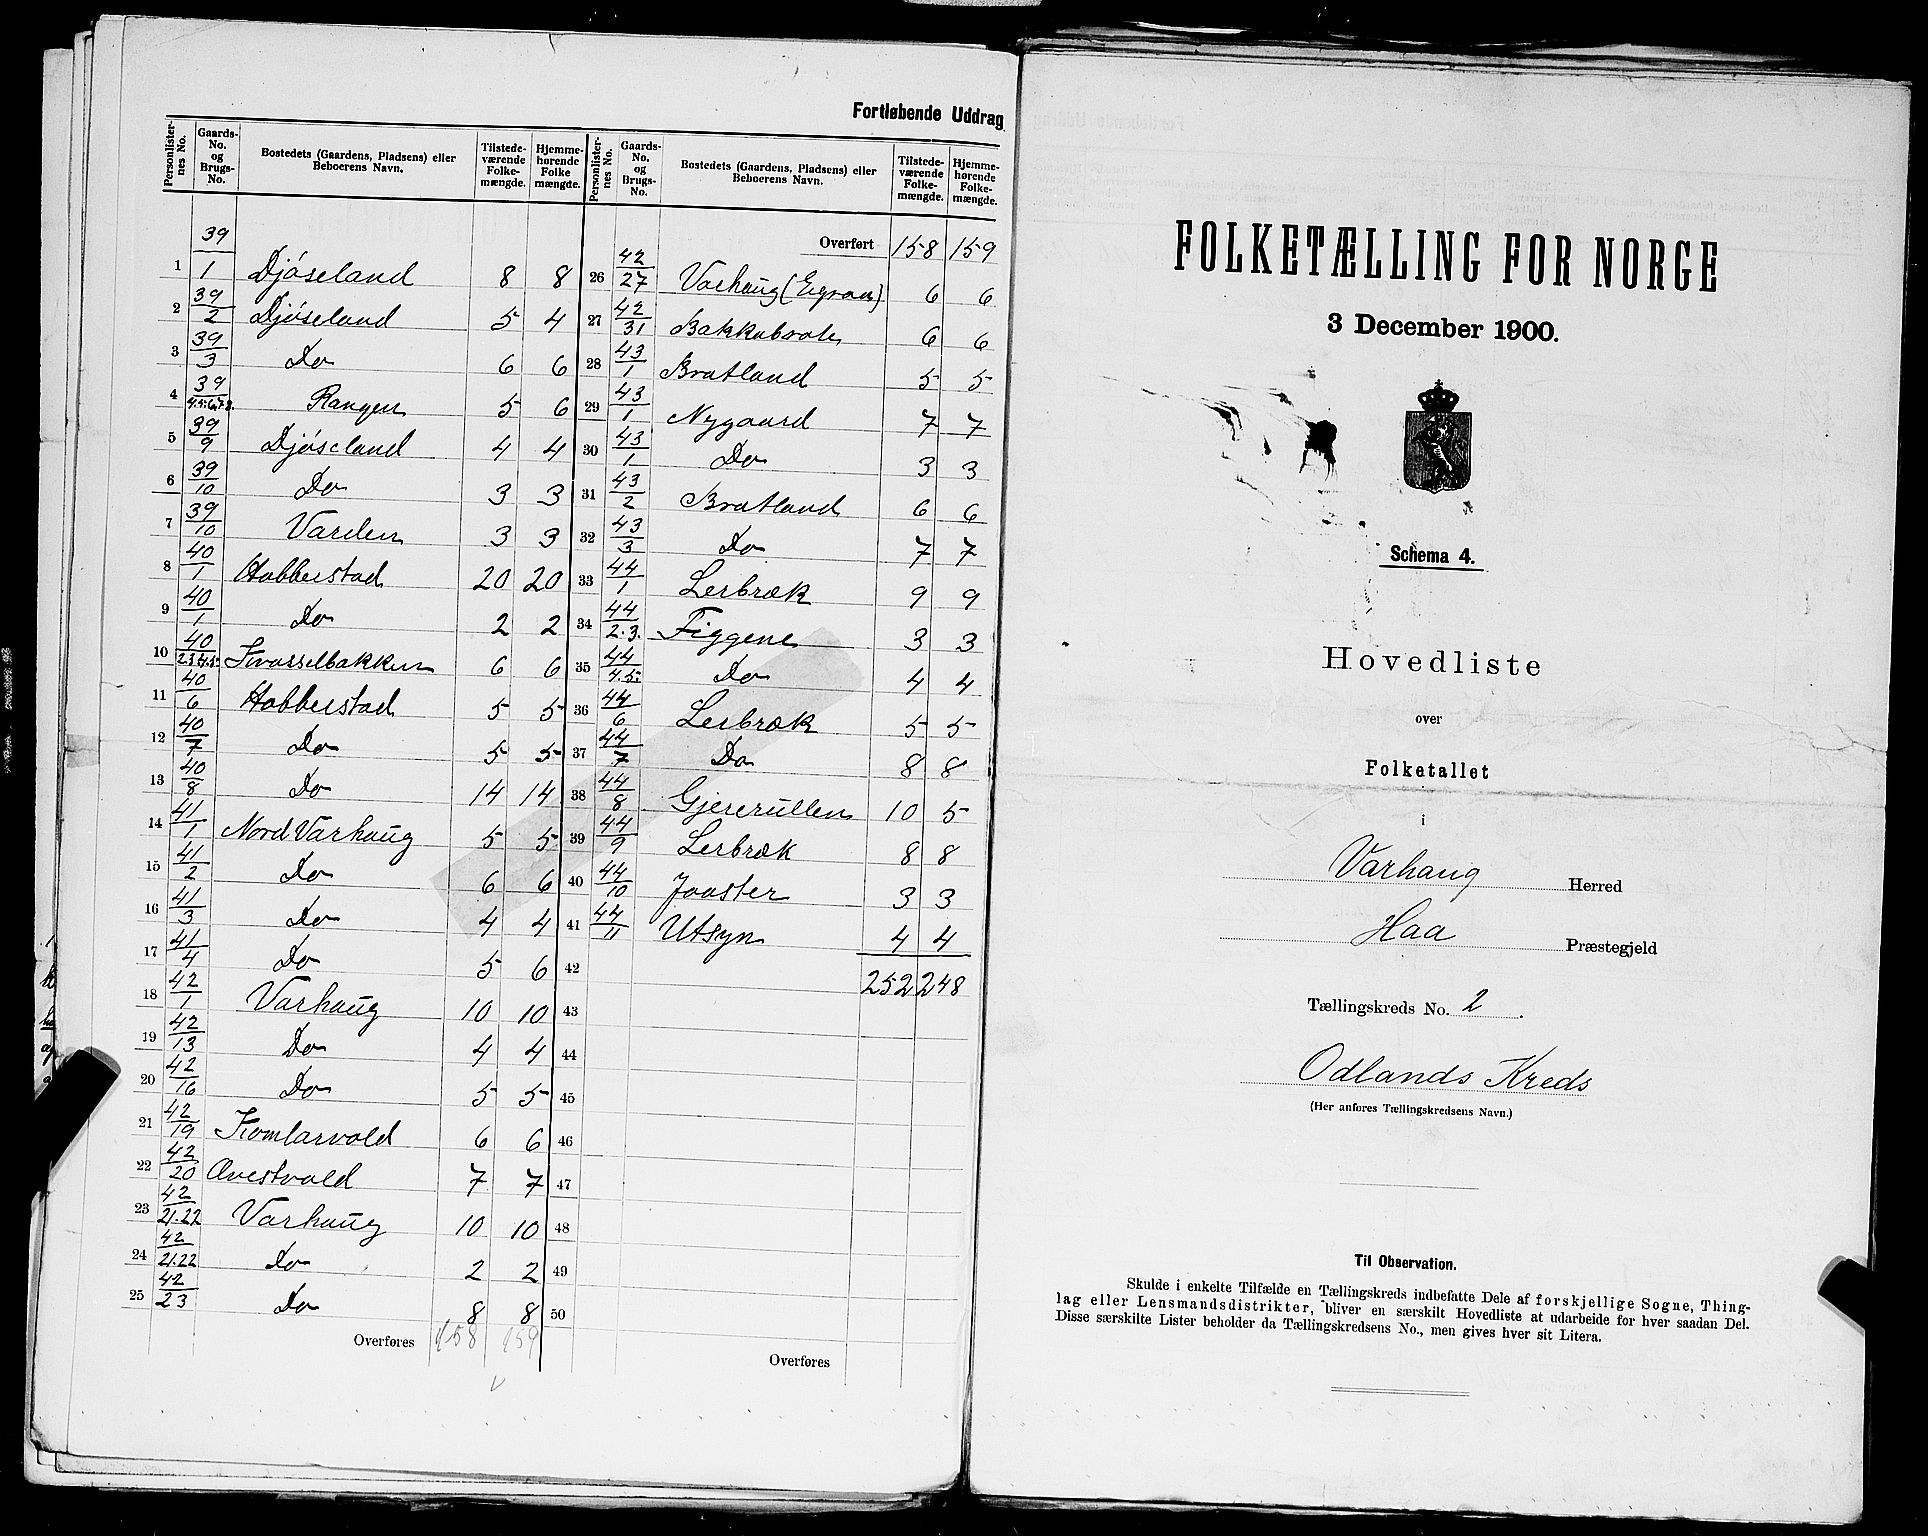 Fortløbende Uddrag
Personlisternes No. | Gaards-No. og Brugs-No. | Bostedets (Gaardens, Pladsens) eller Beboerens Navn. | Tilstedeværende Folkemængde. | Hjemmehørende Folkemængde.
1 39/1 Djøseland 8 8
2 39/2 Djøseland 5 4
3 39/3 Do 6 6
4 39/4.5.6.7.8. Rangen 5 6
5 39/9 Djøseland 4 4
6 39/10 Do 3 3
7 39/10 Varden 3 3
8 40/1 Hobberstad 20 20
9 40/1 Do 2 2
10 40/2.3.4.5. Kvasselbakken 6 6
11 40/6 Hobberstad 5 5
12 40/7 Do 5 5
13 40/8 Do 14 14
14 41/1 Nord Varhaug 5 5
15 41/2 Do 6 6
16 41/3 Do 4 4
17 41/4 Do 5 6
18 42/1 Varhaug 10 10
19 42/13 Do 4 4
20 42/16 Do 5 5
21 42/19 Tomlarvold 6 6
22 42/20 Avestvold 7 7
23 42/21.22 Varhaug 10 10
24 42/21.22 Do 2 2
25 42/23 Do 8 8
Overføres 158 159
Personlisternes No. | Gaards-No. og Brugs-No. | Bostedets (Gaardens, Pladsens) eller Beboerens Navn. | Tilstedeværende Folkemængde. | Hjemmehørende Folkemængde.
Overført 158 159
26 42/27 Varhaug 6 6
27 42/31 6 6
28 43/1 Bratland 5 5
29 43/1 Nygaard 7 7
30 43/1 Do 3 3
31 43/2 Bratland 6 6
32 43/3 Do 7 7
33 44/1 Lerbræk 9 9
34 44/2.3. Tiggene 3 3
35 44/4.5. Do 4 4
36 44/6 Lerbræk 5 5
37 44/7 Do 8 8
38 44/8 Gjererullen 10 5
39 44/9 Lerbræk 8 8
40 44/10 Jaaster 3 3
41 44/11 Utsyn 4 4
42 252 248
43
44
45
46
47
48
49
50
Overføres
FOLKETÆLLING FOR NORGE
3 December 1900.
Schema 4.
Hovedliste
over
Folketallet
i
Varhaug Herred
Haa Præstegjeld
Tællingskreds No. 2.
Odlands Kreds
(Her anføres Tællingskredsens Navn.)
Til Observation.
Skulde i enkelte Tilfælde en Tællingskreds indbefatte Dele af forskjellige Sogne, Thing-
lag eller Lensmandsdistrikter, bliver en særskilt Hovedliste at udarbeide for hver saadan Del.
Disse særskilte Lister beholder da Tællingskredsens No., men gives hver sit Litera.